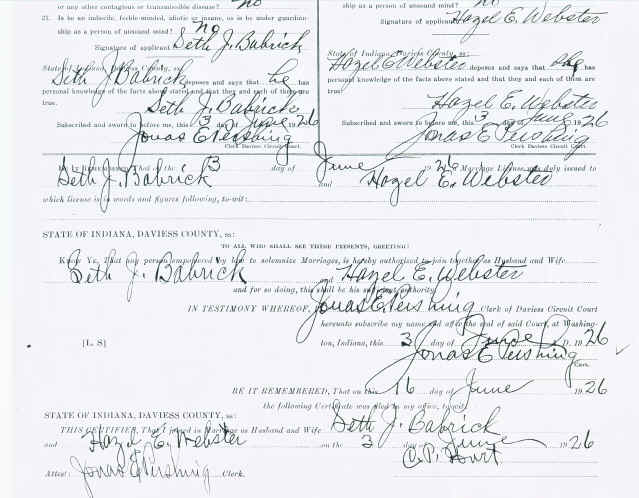 or any other contagious or transmissible disease? no
no
21. Is he an imbecile, feeble-minded, idiotic or insane, or is he under guardian-
ship as a person of unsound mind? no
Signature of applicant Seth J. Babrick
ship as a person of unsound mind?
Signature of applicant Hazel E. Webster
State of Indiana, Daviess County, ss:
Seth J. Babrick deposes and says that he has
personal knowledge of the facts above stated and that they and each of them are
true.
Seth J. Babrick
Subscribed and sworn to before me, this 3 day of June 1926
Jonas E. Pershing
Clerk Daviess Circuit Court.
State of Indiana, Daviess County, ss:
Hazel E. Webster deposes and says that she has
personal knowledge of the facts above stated and that they and each of them are
true.
Hazel E. Webster
Subscribed and sworn to before me, this 3 day of June 1926
Jonas E. Pershing
Clerk Daviess Circuit Court.
Be it Remembered, That on the 3 day of June 1926 a Marriage License was duly issued to
Seth J. Babrick and Hazel E. Webster
which license is in words and figures following, to-wit:
STATE OF INDIANA, DAVIESS COUNTY, ss:
TO ALL WHO SHALL SEE THESE PRESENTS, GREETING:
Know Ye, That any person empowered by law to solemnize Marriages, is hereby authorized to join together as Husband and Wife
Seth J. Babrick and Hazel E. Webster
and for so doing, this shall be his sufficient authority.
IN TESTIMONY WHEREOF, I, Jonas E. Pershing Clerk of Daviess Circuit Court
hereunto subscribe my name and affix the seal of said Court, at Washing-
[L. S] ton, Indiana, this 3 day of June A. D. 1926
Jonas E. Pershing
Clerk.
BE IT REMEMBERED, That on this 16 day of June 1926
the following Certificate was filed in my office, to-wit:
STATE OF INDIANA, DAVIESS COUNTY, ss:
THIS CERTIFIES, That I joined in Marriage as Husband and Wife Seth J. Babrick
and Hazel E. Webster on the 3 day of June 1926
C. P. Hurt
Attest: Jonas E. Pershing Clerk.